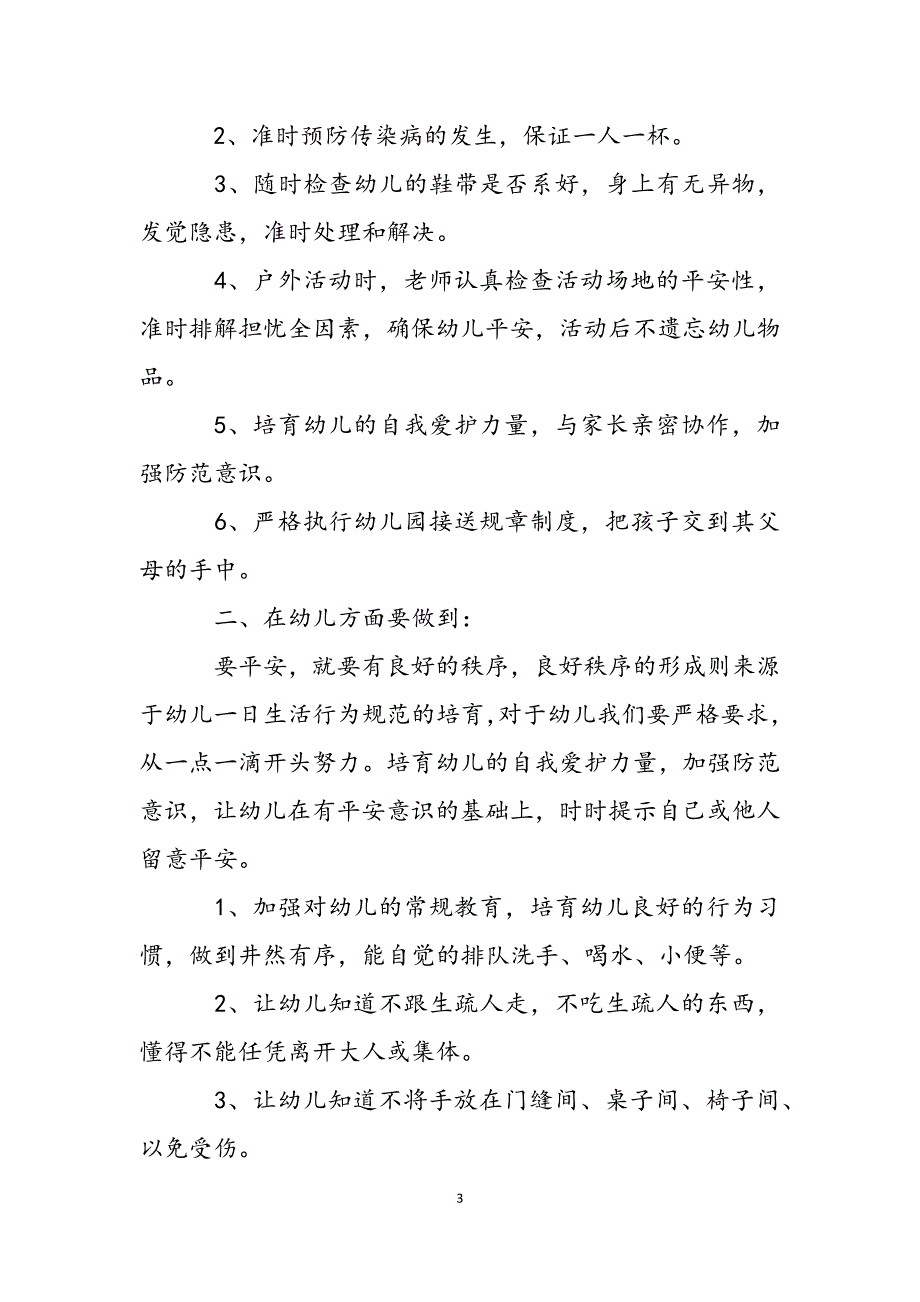 2、准时预防传染病的发生，保证一人一杯。
3、随时检查幼儿的鞋带是否系好，身上有无异物，
发觉隐患，准时处理和解决。
4、户外活动时，老师认真检查活动场地的平安性，
准时排解担忧全因素，确保幼儿平安，活动后不遗忘幼儿物
品。
5、培育幼儿的自我爱护力量，与家长亲密协作，加
强防范意识。
6、严格执行幼儿园接送规章制度，把孩子交到其父
母的手中。
二、在幼儿方面要做到：
要平安，就要有良好的秩序，良好秩序的形成则来源
于幼儿一日生活行为规范的培育,对于幼儿我们要严格要求，
从一点一滴开头努力。培育幼儿的自我爱护力量，加强防范
意识，让幼儿在有平安意识的基础上，时时提示自己或他人
留意平安。
1、加强对幼儿的常规教育，培育幼儿良好的行为习
惯，做到井然有序，能自觉的排队洗手、喝水、小便等。
2、让幼儿知道不跟生疏人走，不吃生疏人的东西，
懂得不能任凭离开大人或集体。
3、让幼儿知道不将手放在门缝间、桌子间、椅子间、
以免受伤。
3